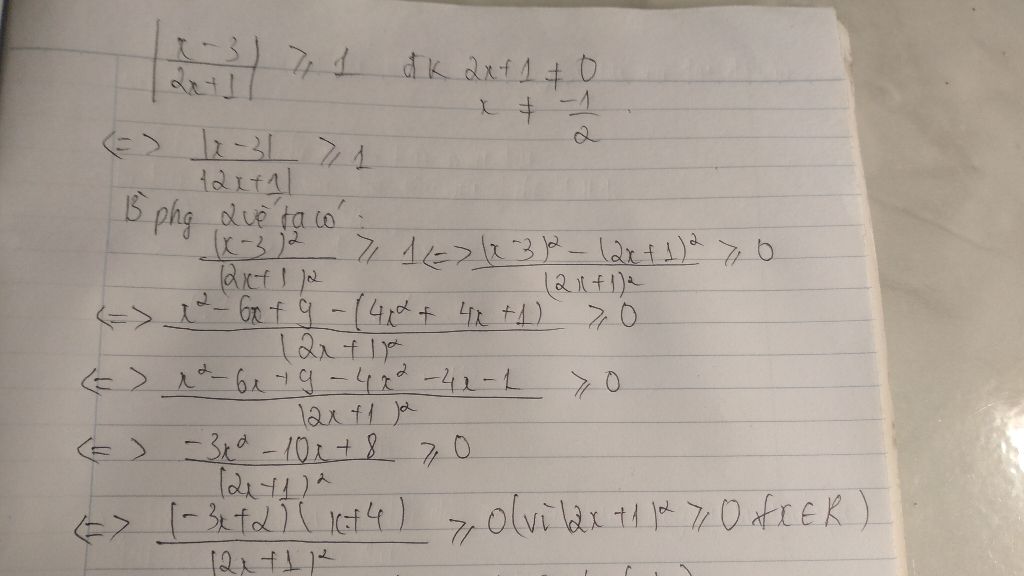 |x-3 / 2x+1| ⩾ 1 đk 2x+1 ≠ 0
x ≠ -1/2
<=> |x-3| / |2x+1| ⩾ 1
B phg 2 vế ta có :
(x-3)² / (2x+1)² ⩾ 1 <=> (x-3)² - (2x+1)² / (2x+1)² ⩾ 0
<=> x² - 6x + 9 - (4x² + 4x + 1) / (2x+1)² ⩾ 0
<=> x² - 6x + 9 - 4x² - 4x - 1 / (2x+1)² ⩾ 0
<=> -3x² - 10x + 8 / (2x+1)² ⩾ 0
<=> (-3x+2)(x+4) / (2x+1)² ⩾ 0 (vì (2x+1)² ⩾ 0 ∀x ∈ R)